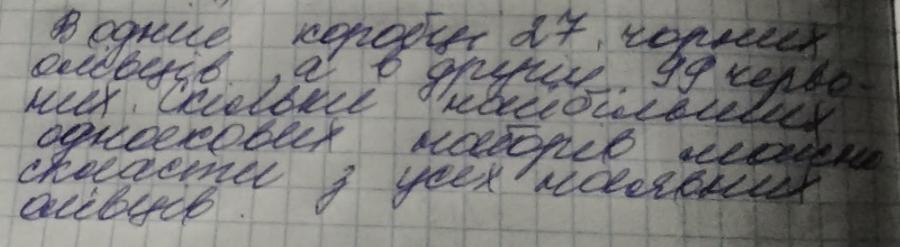 В одние коробци 27 чорних
олівців, а в другіи 99 черво-
них. Скільки найбільших
однаекових наборів можно
скласти з усех наявних
олівців.